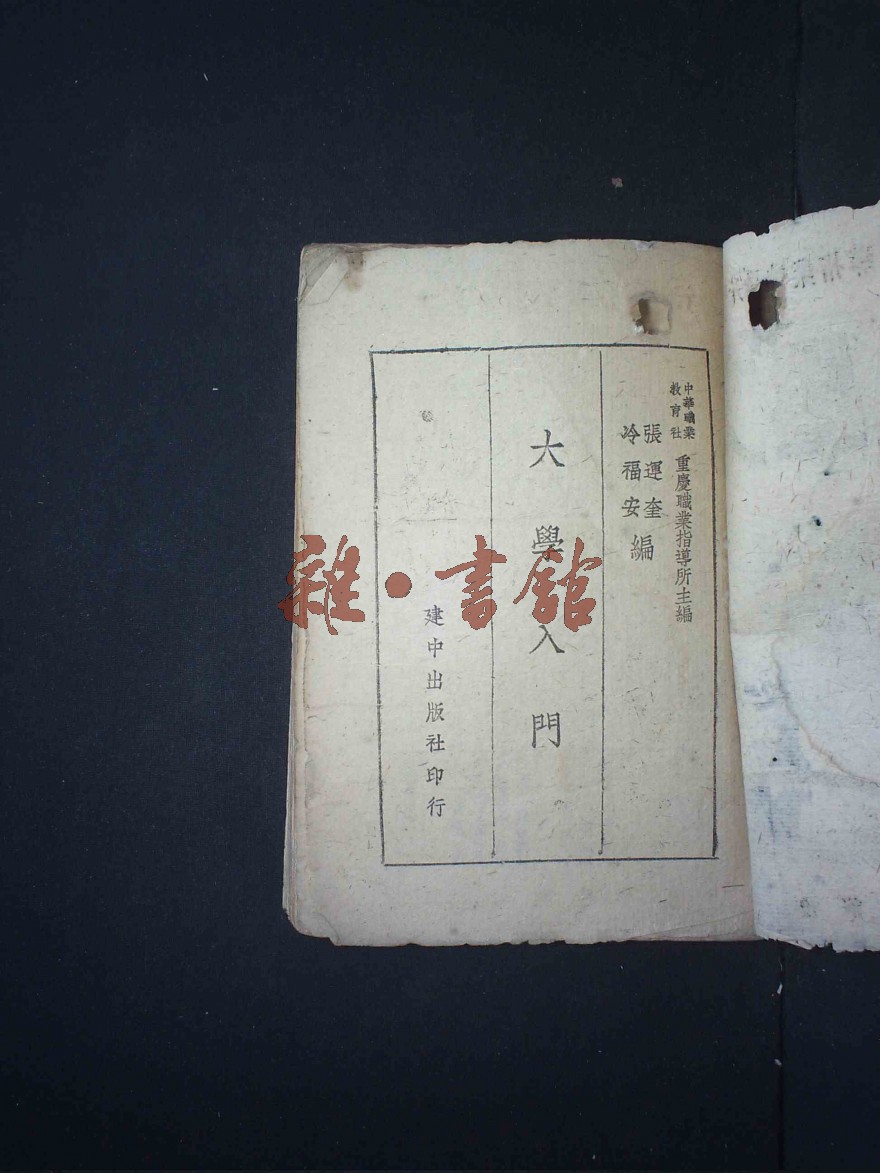 中華職業
教育社
重慶職業指導所主編
張運奎
冷福安
編
大學入門
建中出版社印行
雜·書館